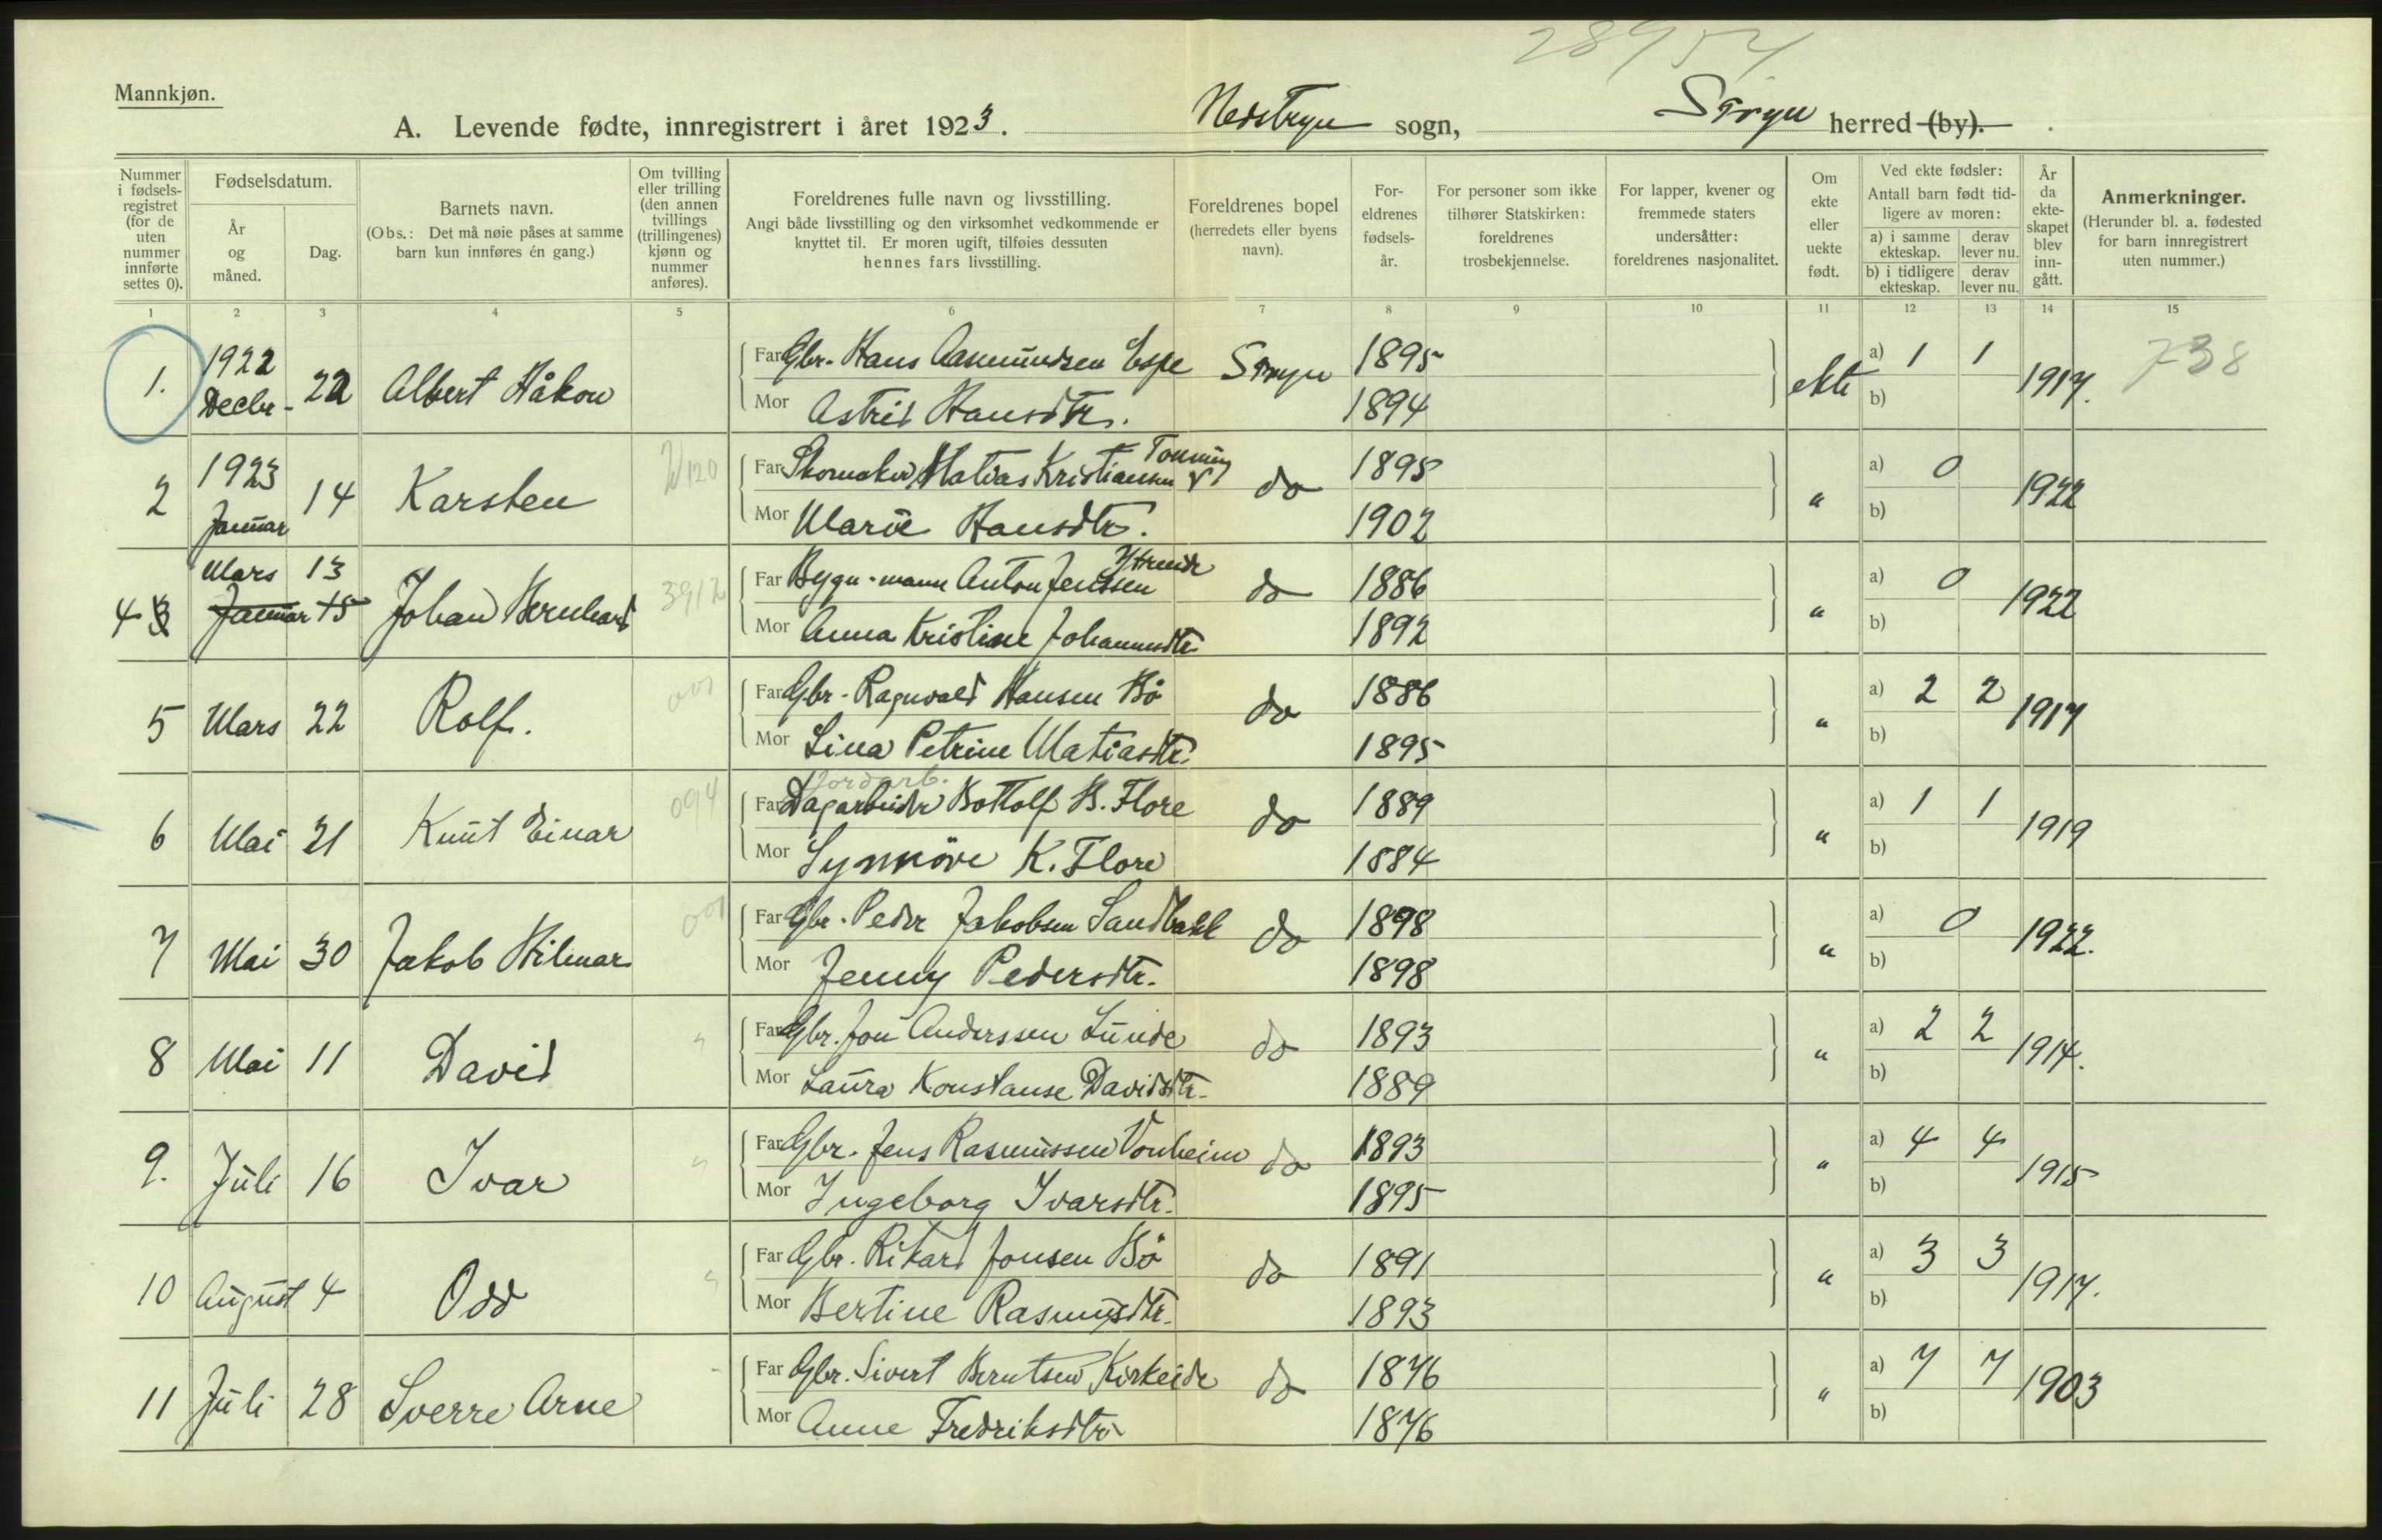 28954
Mannkjøn.
A. Levende fødte, innregistrert i året 1923. Nedstryn sogn, Stryn herred (by).
Nummer i fødselsregistret (for de uten nummer innførte settes 0).
Fødselsdatum.
År og måned.
Dag.
Barnets navn.
(Obs.: Det må nøie påses at samme barn kun innføres én gang.)
Om tvilling eller trilling (den annen tvillings (trillingenes) kjønn og nummer anføres).
Foreldrenes fulle navn og livsstilling.
Angi både livsstilling og den virksomhet vedkommende er knyttet til. Er moren ugift, tilføies dessuten hennes fars livsstilling.
Foreldrenes bopel (herredets eller byens navn).
Foreldrenes fødselsår.
For personer som ikke tilhører Statskirken: foreldrenes trosbekjennelse.
For lapper, kvener og fremmede staters undersåtter: foreldrenes nasjonalitet.
Om ekte eller uekte født.
Ved ekte fødsler: Antall barn født tidligere av moren:
a) i samme ekteskap. derav lever nu.
b) i tidligere ekteskap. derav lever nu.
År da ekteskapet blev inngått.
Anmerkninger.
(Herunder bl. a. fødested for barn innregistrert uten nummer.)
1 2 3 4 5 6 7 8 9 10 11 12 13 14 15
1. 1922 Decbr- 22 Albert Håkon Far Gbr. Hans Aasmundsen Espe Stryn 1895 ekte a) 1 1 1917. 738
Mor Astrid Hansdtr. 1894 b)
2 1923 Januar 14 Karsten Far Skomaker Matias Kristiansen Tonning do 1895 " a) 0 1922
Mor Marie Hansdtr. 1902 b)
4 3 Mars 13 Januar 15 Johan Bernhard 3912 Far Bygn.mann Anton Jenssen Ytreeide do 1886 " a) 0 1922
Mor Anna Kristine Johannesdtr. 1892 b)
5 Mars 22 Rolf. 001 Far Gbr. Ragnvald Hansen Bö do 1886 " a) 2 2 1917
Mor Lina Petrine Matiasdtr. 1895 b)
6 Mai 21 Knut Einar 094 Far Jordarb. Dagarbeider Bottolf B. Flore do 1889 " a) 1 1 1919
Mor Synnöve K. Flore 1884 b)
7 Mai 30 Jakob Hilmar 001 Far Gbr. Peder Jakobsen Sandbakk do 1898 " a) 0 1922.
Mor Jenny Pedersdtr. 1898 b)
8 Mai 11 David Far Gbr. Jon Anderssen Lunde do 1893 " a) 2 2 1914.
Mor Laura Konstanse Davidsdtr. 1889 b)
9. Juli 16 Ivar Far Gbr. Jens Rasmussen Vonheim do 1893 " a) 4 4 1915
Mor Ingeborg Ivarsdtr. 1895 b)
10 August 4 Odd Far Gbr. Rikard Jonsen Bö do 1891 " a) 3 3 1917.
Mor Bertine Rasmusdtr. 1893 b)
11 Juli 28 Sverre Arne Far Gbr. Sivert Berntsen Kirkeide do 1876 " a) 7 7 1903
Mor Anne Fredriksdtr 1876 b)